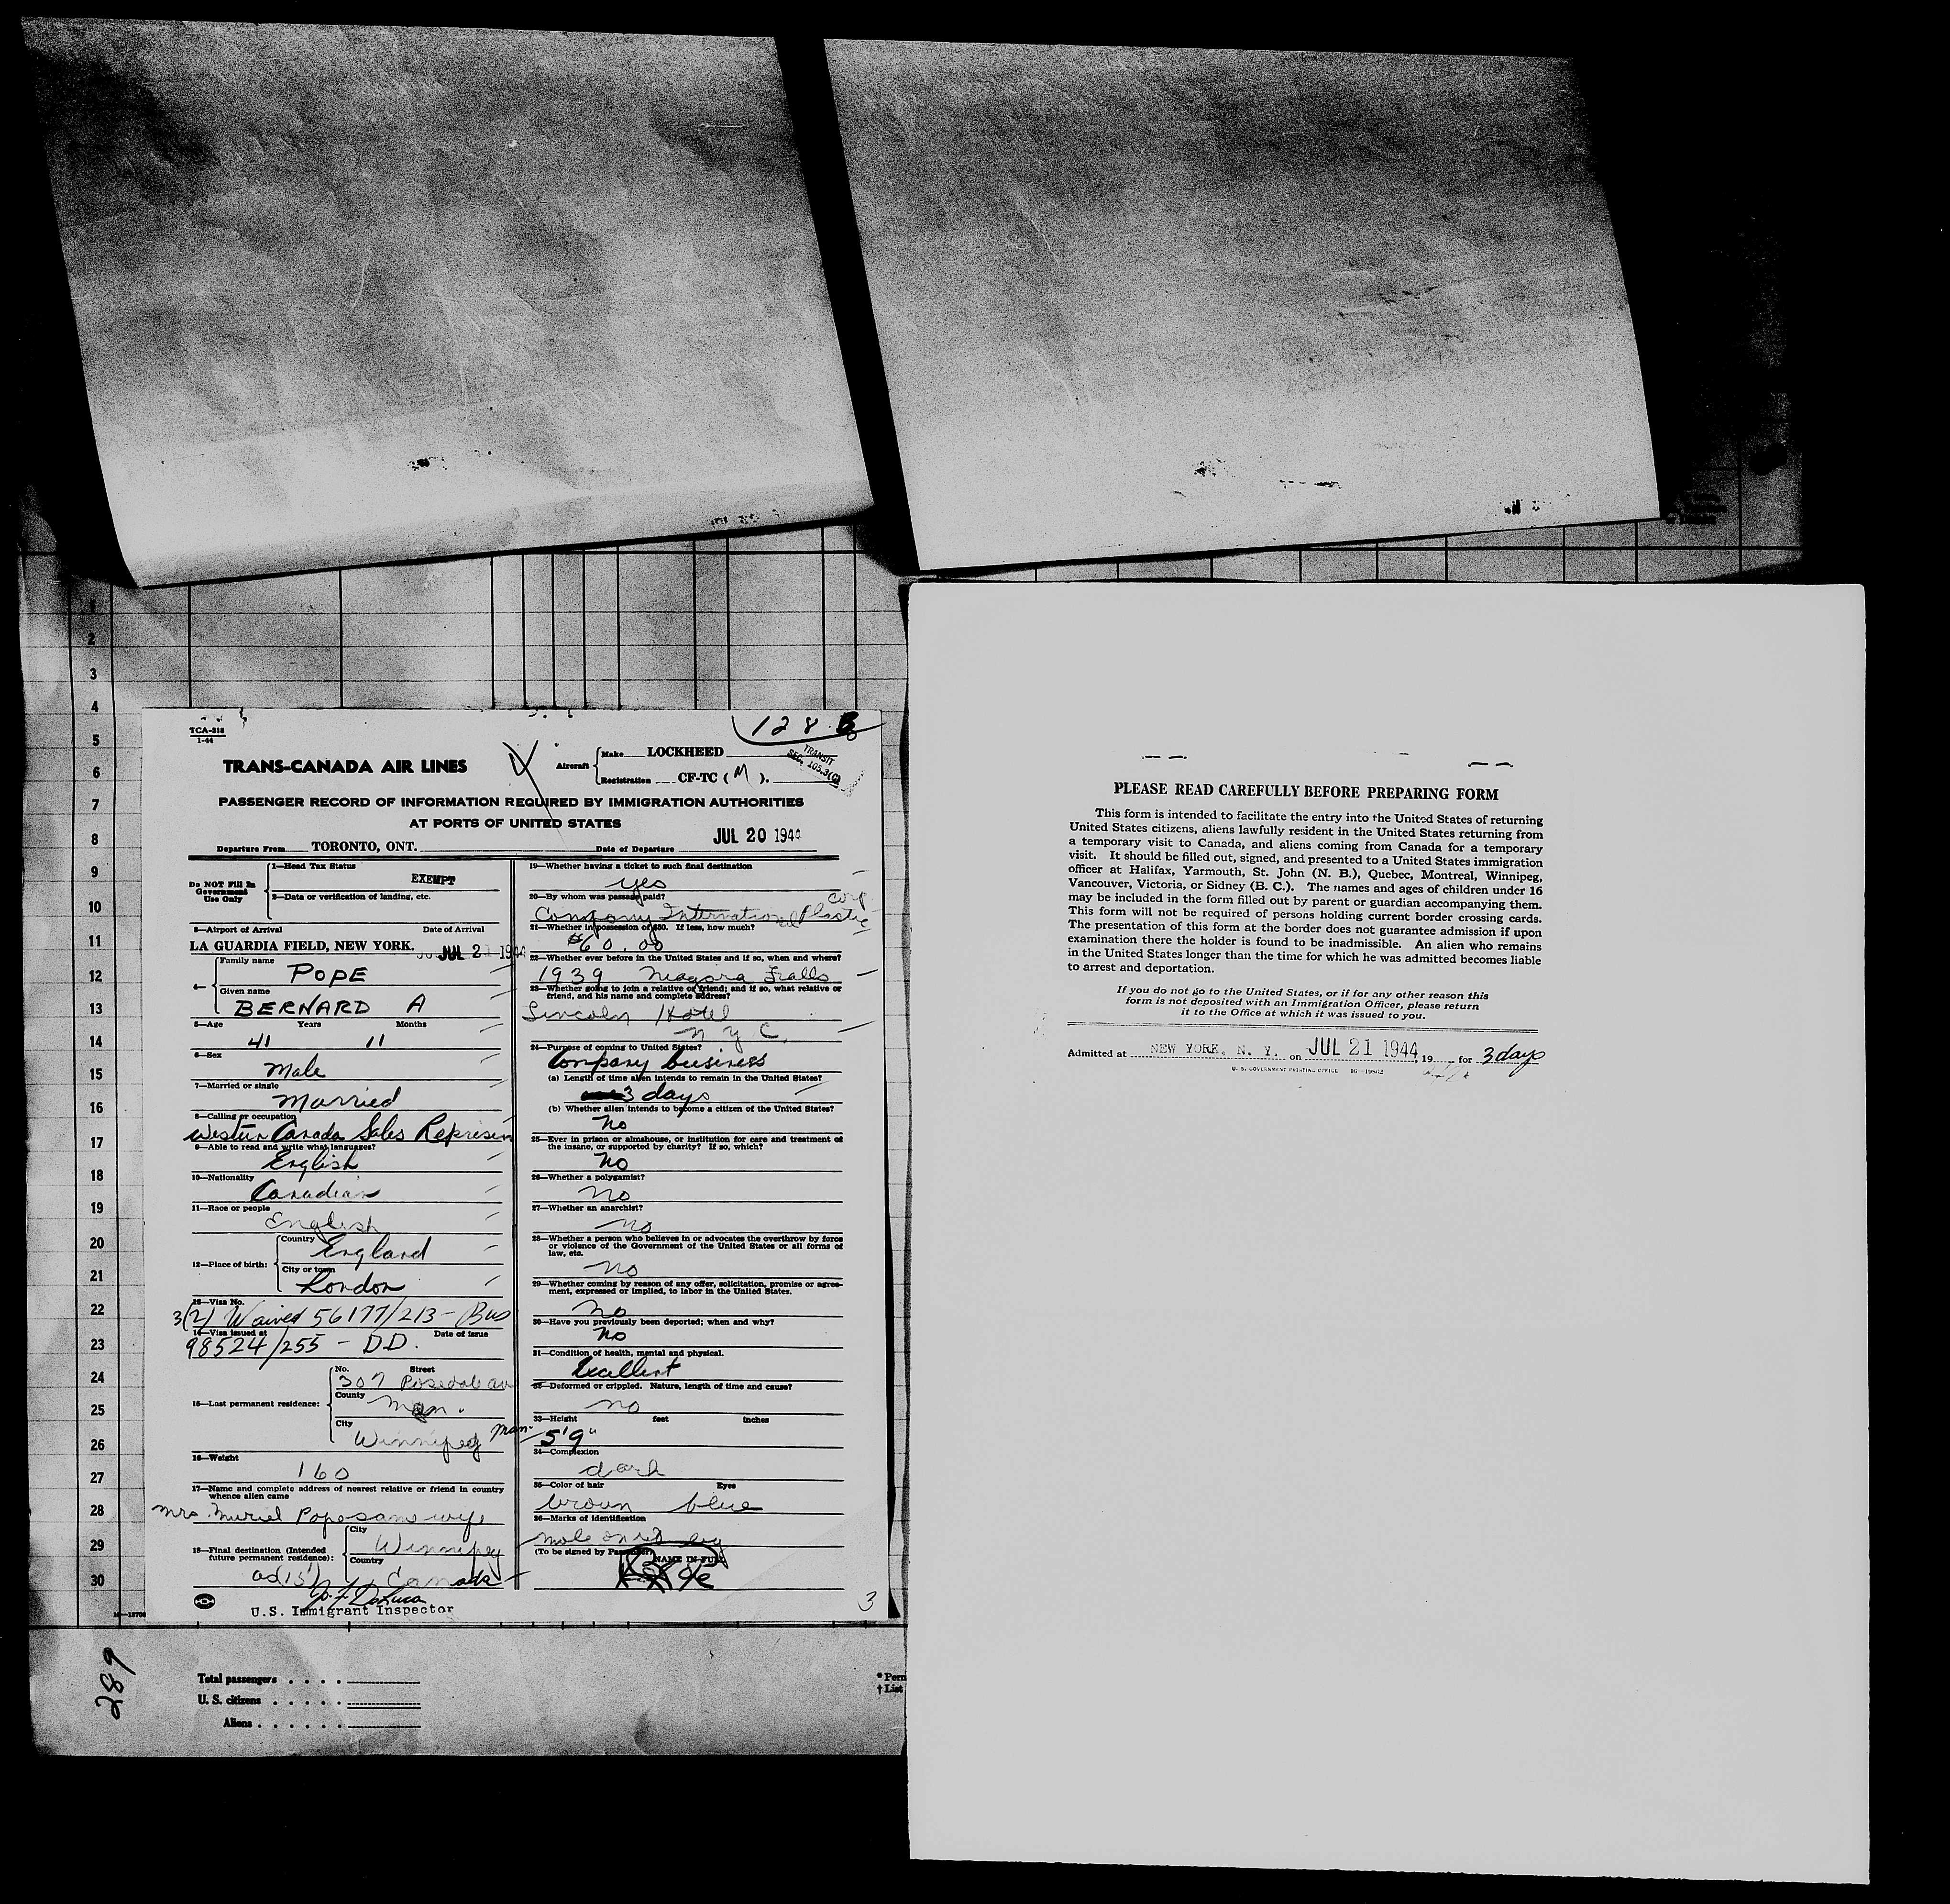 1
2
3
4
5
6
7
8
9
10
11
12
13
14
15
16
17
18
19
20
21
22
23
24
25
26
27
28
29
30
TCA-518
1-44
128 B
TRANS-CANADA AIR LINES
Aircraft
Make LOCKHEED
Registration CF-TC ( M ).
TRANSIT
SEC. 105.3(C)
PASSENGER RECORD OF INFORMATION REQUIRED BY IMMIGRATION AUTHORITIES
AT PORTS OF UNITED STATES
JUL 20 1944
Departure From TORONTO, ONT. Date of Departure
Do NOT Fill In
Government
Use Only
1—Head Tax Status
EXEMPT
2—Data or verification of landing, etc.
3—Airport of Arrival Date of Arrival
LA GUARDIA FIELD, NEW YORK. JUL 2 1944
4—
Family name
POPE
Given name
BERNARD A
5—Age Years Months
41 11
6—Sex
Male
7—Married or single
Married
8—Calling or occupation
Western Canada Sales Represen
9—Able to read and write what languages?
English
10—Nationality
Canadian
11—Race or people
English
12—Place of birth:
Country
England
City or town
London
13—Visa No.
3(2) Waived 56177/213 - Bus
14—Visa issued at Date of issue
98524/255 - DD.
15—Last permanent residence:
No. Street
307 Rosedale av
County
Man.
City
Winnipeg Man.
16—Weight
160
17—Name and complete address of nearest relative or friend in country
whence alien came
Mrs. Muriel Pope same wife
18—Final destination (Intended
future permanent residence):
City
Winnipeg
Country
Canada
U.S. Immigrant Inspector
19—Whether having a ticket to such final destination
yes
20—By whom was passage paid?
Company International Plastic Corp
21—Whether in possession of $50. If less, how much?
$60.00
22—Whether ever before in the United States and if so, when and where?
1939 Niagara Falls
23—Whether going to join a relative or friend; and if so, what relative or
friend, and his name and complete address?
Lincoln Hotel
N Y C
24—Purpose of coming to United States?
Company business
(a) Length of time alien intends to remain in the United States?
3 days
(b) Whether alien intends to become a citizen of the United States?
No
25—Ever in prison or almshouse, or institution for care and treatment of
the insane, or supported by charity? If so, which?
No
26—Whether a polygamist?
no
27—Whether an anarchist?
no
28—Whether a person who believes in or advocates the overthrow by force
or violence of the Government of the United States or all forms of
law, etc.
no
29—Whether coming by reason of any offer, solicitation, promise or agree-
ment, expressed or implied, to labor in the United States.
no
30—Have you previously been deported; when and why?
No
31—Condition of health, mental and physical.
Excellent
32—Deformed or crippled. Nature, length of time and cause?
no
33—Height feet inches
5'9"
34—Complexion
dark
35—Color of hair Eyes
brown blue
36—Marks of identification
mole on leg
(To be signed by Passenger)
NAME IN FULL
3
289
Total passengers
U. S. citizens
Aliens
* Perm
† List
PLEASE READ CAREFULLY BEFORE PREPARING FORM
This form is intended to facilitate the entry into the United States of returning
United States citizens, aliens lawfully resident in the United States returning from
a temporary visit to Canada, and aliens coming from Canada for a temporary
visit. It should be filled out, signed, and presented to a United States immigration
officer at Halifax, Yarmouth, St. John (N. B.), Quebec, Montreal, Winnipeg,
Vancouver, Victoria, or Sidney (B. C.). The names and ages of children under 16
may be included in the form filled out by parent or guardian accompanying them.
This form will not be required of persons holding current border crossing cards.
The presentation of this form at the border does not guarantee admission if upon
examination there the holder is found to be inadmissible. An alien who remains
in the United States longer than the time for which he was admitted becomes liable
to arrest and deportation.
If you do not go to the United States, or if for any other reason this
form is not deposited with an Immigration Officer, please return
it to the Office at which it was issued to you.
Admitted at NEW YORK, N. Y. on JUL 21 1944, 19 for 3 days
U. S. GOVERNMENT PRINTING OFFICE